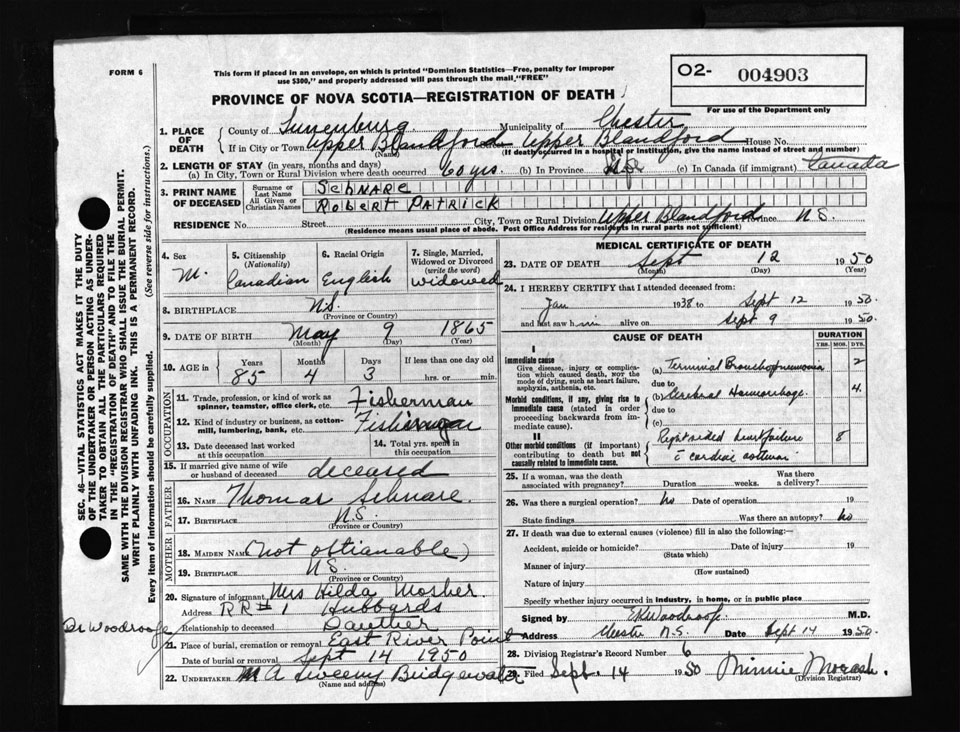 FORM 6
This form if placed in an envelope, on which is printed "Dominion Statistics—Free, penalty for improper
use $300," and properly addressed will pass through the mail "FREE"
O2- 004903
For use of the Department only
PROVINCE OF NOVA SCOTIA—REGISTRATION OF DEATH
1. PLACE OF DEATH { County of Lunenburg Municipality of Chester
If in City or Town Upper Blandford Upper Blandford House No.
(Name) (If death occurred in a hospital or institution, give the name instead of street and number)
2. LENGTH OF STAY (in years, months and days)
(a) In City, Town or Rural Division where death occurred 60 yrs. (b) In Province life (c) In Canada (if immigrant) Canada
3. PRINT NAME OF DECEASED { Surname or Last Name SCHNARE
All Given or Christian Names ROBERT PATRICK
RESIDENCE No. Street City, Town or Rural Division Upper Blandford Province N.S.
(Residence means usual place of abode. Post Office Address for residents in rural parts not sufficient)
4. Sex M.
5. Citizenship (Nationality) Canadian
6. Racial Origin English
7. Single, Married, Widowed or Divorced (write the word) widowed
8. BIRTHPLACE N.S.
(Province or Country)
9. DATE OF BIRTH May 9 1865
(Month) (Day) (Year)
10. AGE IN { Years 85 Months 4 Days 3 If less than one day old
hrs. or min.
OCCUPATION
11. Trade, profession, or kind of work as spinner, teamster, office clerk, etc. Fisherman
12. Kind of industry or business, as cotton-mill, lumbering, bank, etc.
13. Date deceased last worked at this occupation
14. Total yrs. spent in this occupation
15. If married give name of wife or husband of deceased deceased
FATHER
16. NAME Thomas Schnare.
17. BIRTHPLACE N.S.
(Province or Country)
MOTHER
18. MAIDEN NAME (not obtianable)
19. BIRTHPLACE N.S.
(Province or Country)
20. Signature of informant Mrs Hilda Mosher.
Address RR#1 Hubbards
Relationship to deceased Dauther
Dr Woodroofe
21. Place of burial, cremation or removal East River Point
Date of burial or removal Sept 14 1950
22. UNDERTAKER M A Sweeny Bridgewater
(Name and address)
MEDICAL CERTIFICATE OF DEATH
23. DATE OF DEATH Sept 12 1950
(Month) (Day) (Year)
24. I HEREBY CERTIFY that I attended deceased from:
Jan 1938 to Sept 12 1950.
and last saw him alive on Sept 9 1950.
CAUSE OF DEATH
DURATION
YRS. MOS. DYS.
I
Immediate cause
Give disease, injury or complication which caused death, not the mode of dying, such as heart failure, asphyxia, asthenia, etc.
(a) Terminal Bronchopneumonia 2
due to
Morbid conditions, if any, giving rise to immediate cause (stated in order proceeding backwards from immediate cause).
(b) Cerebral Haemorrhage. 4.
due to
(c)
II
Other morbid conditions (if important) contributing to death but not causally related to immediate cause.
Right sided heart failure 8
c̄ cardiac
25. If a woman, was the death associated with pregnancy? Duration weeks. Was there a delivery?
26. Was there a surgical operation? no Date of operation 19
State findings Was there an autopsy? no
27. If death was due to external causes (violence) fill in also the following:—
Accident, suicide or homicide? Date of injury 19
(State which)
Manner of injury
(How sustained)
Nature of injury
Specify whether injury occurred in industry, in home, or in public place
Signed by ERWoodroofe M.D.
Address Chester N.S. Date Sept 14 1950.
28. Division Registrar's Record Number 6
29. Filed Sept. 14 1950 Minnie Morash.
(Division Registrar)
SEC. 46—VITAL STATISTICS ACT MAKES IT THE DUTY
OF THE UNDERTAKER OR PERSON ACTING AS UNDER-
TAKER TO OBTAIN ALL THE PARTICULARS REQUIRED
IN THE "REGISTRATION OF DEATH" AND TO FILE THE
SAME WITH THE DIVISION REGISTRAR WHO SHALL ISSUE THE BURIAL PERMIT.
WRITE PLAINLY WITH UNFADING INK. THIS IS A PERMANENT RECORD.
Every item of information should be carefully supplied. (See reverse side for instructions.)